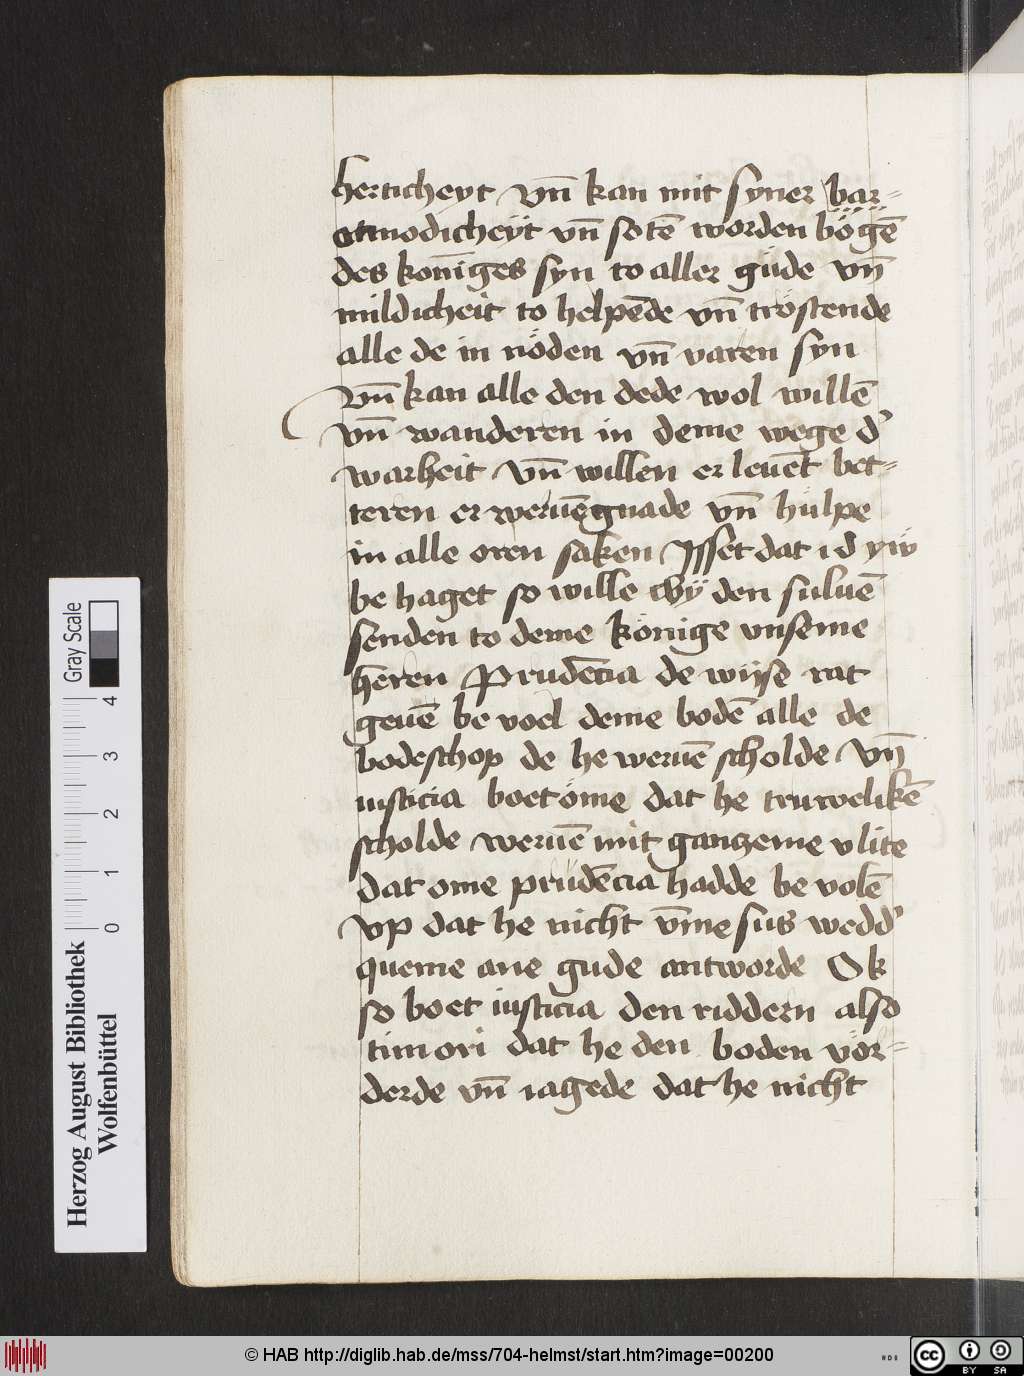 herticheyt vn̄ kan mit syner bar⸗
otmodicheÿt vn̄ sotē worden bögē
des koniḡes syn to aller güde vn̄
mildicheit to helpēde vn̄ tröstende
alle de in nöden vn̄ varen syn
vn̄ kan alle den dede wol willē
vn̄ wanderen in deme wege d'
warheit vn̄ willen er leuēt bet⸗
teren er weruēgnade vn̄ hülpe
in alle oren saken Jsset dat id yw
be haget so wille wÿ den suluē
senden to deme könige vnseme
heren Prudēcia de wijse rat
geuē be voel deme bodē alle de
bodeschop de he weruē scholde vn̄
iusticia boet öme dat he truwelikē
scholde weruē mit gantzeme vlite
dat ome prüdēcia hadde be volē
vp dat he nicht vm̄e sus wedd'
queme ane gude antworde Ok
so boet iusticia den riddern also
timori dat he den boden vör⸗
derde vn̄ iagede dat he nicht
Herzog August Bibliothek
Wolfenbüttel
0 1 2 3 4
Gray Scale
© HAB http://diglib.hab.de/mss/704-helmst/start.htm?image=00200
cc BY SA